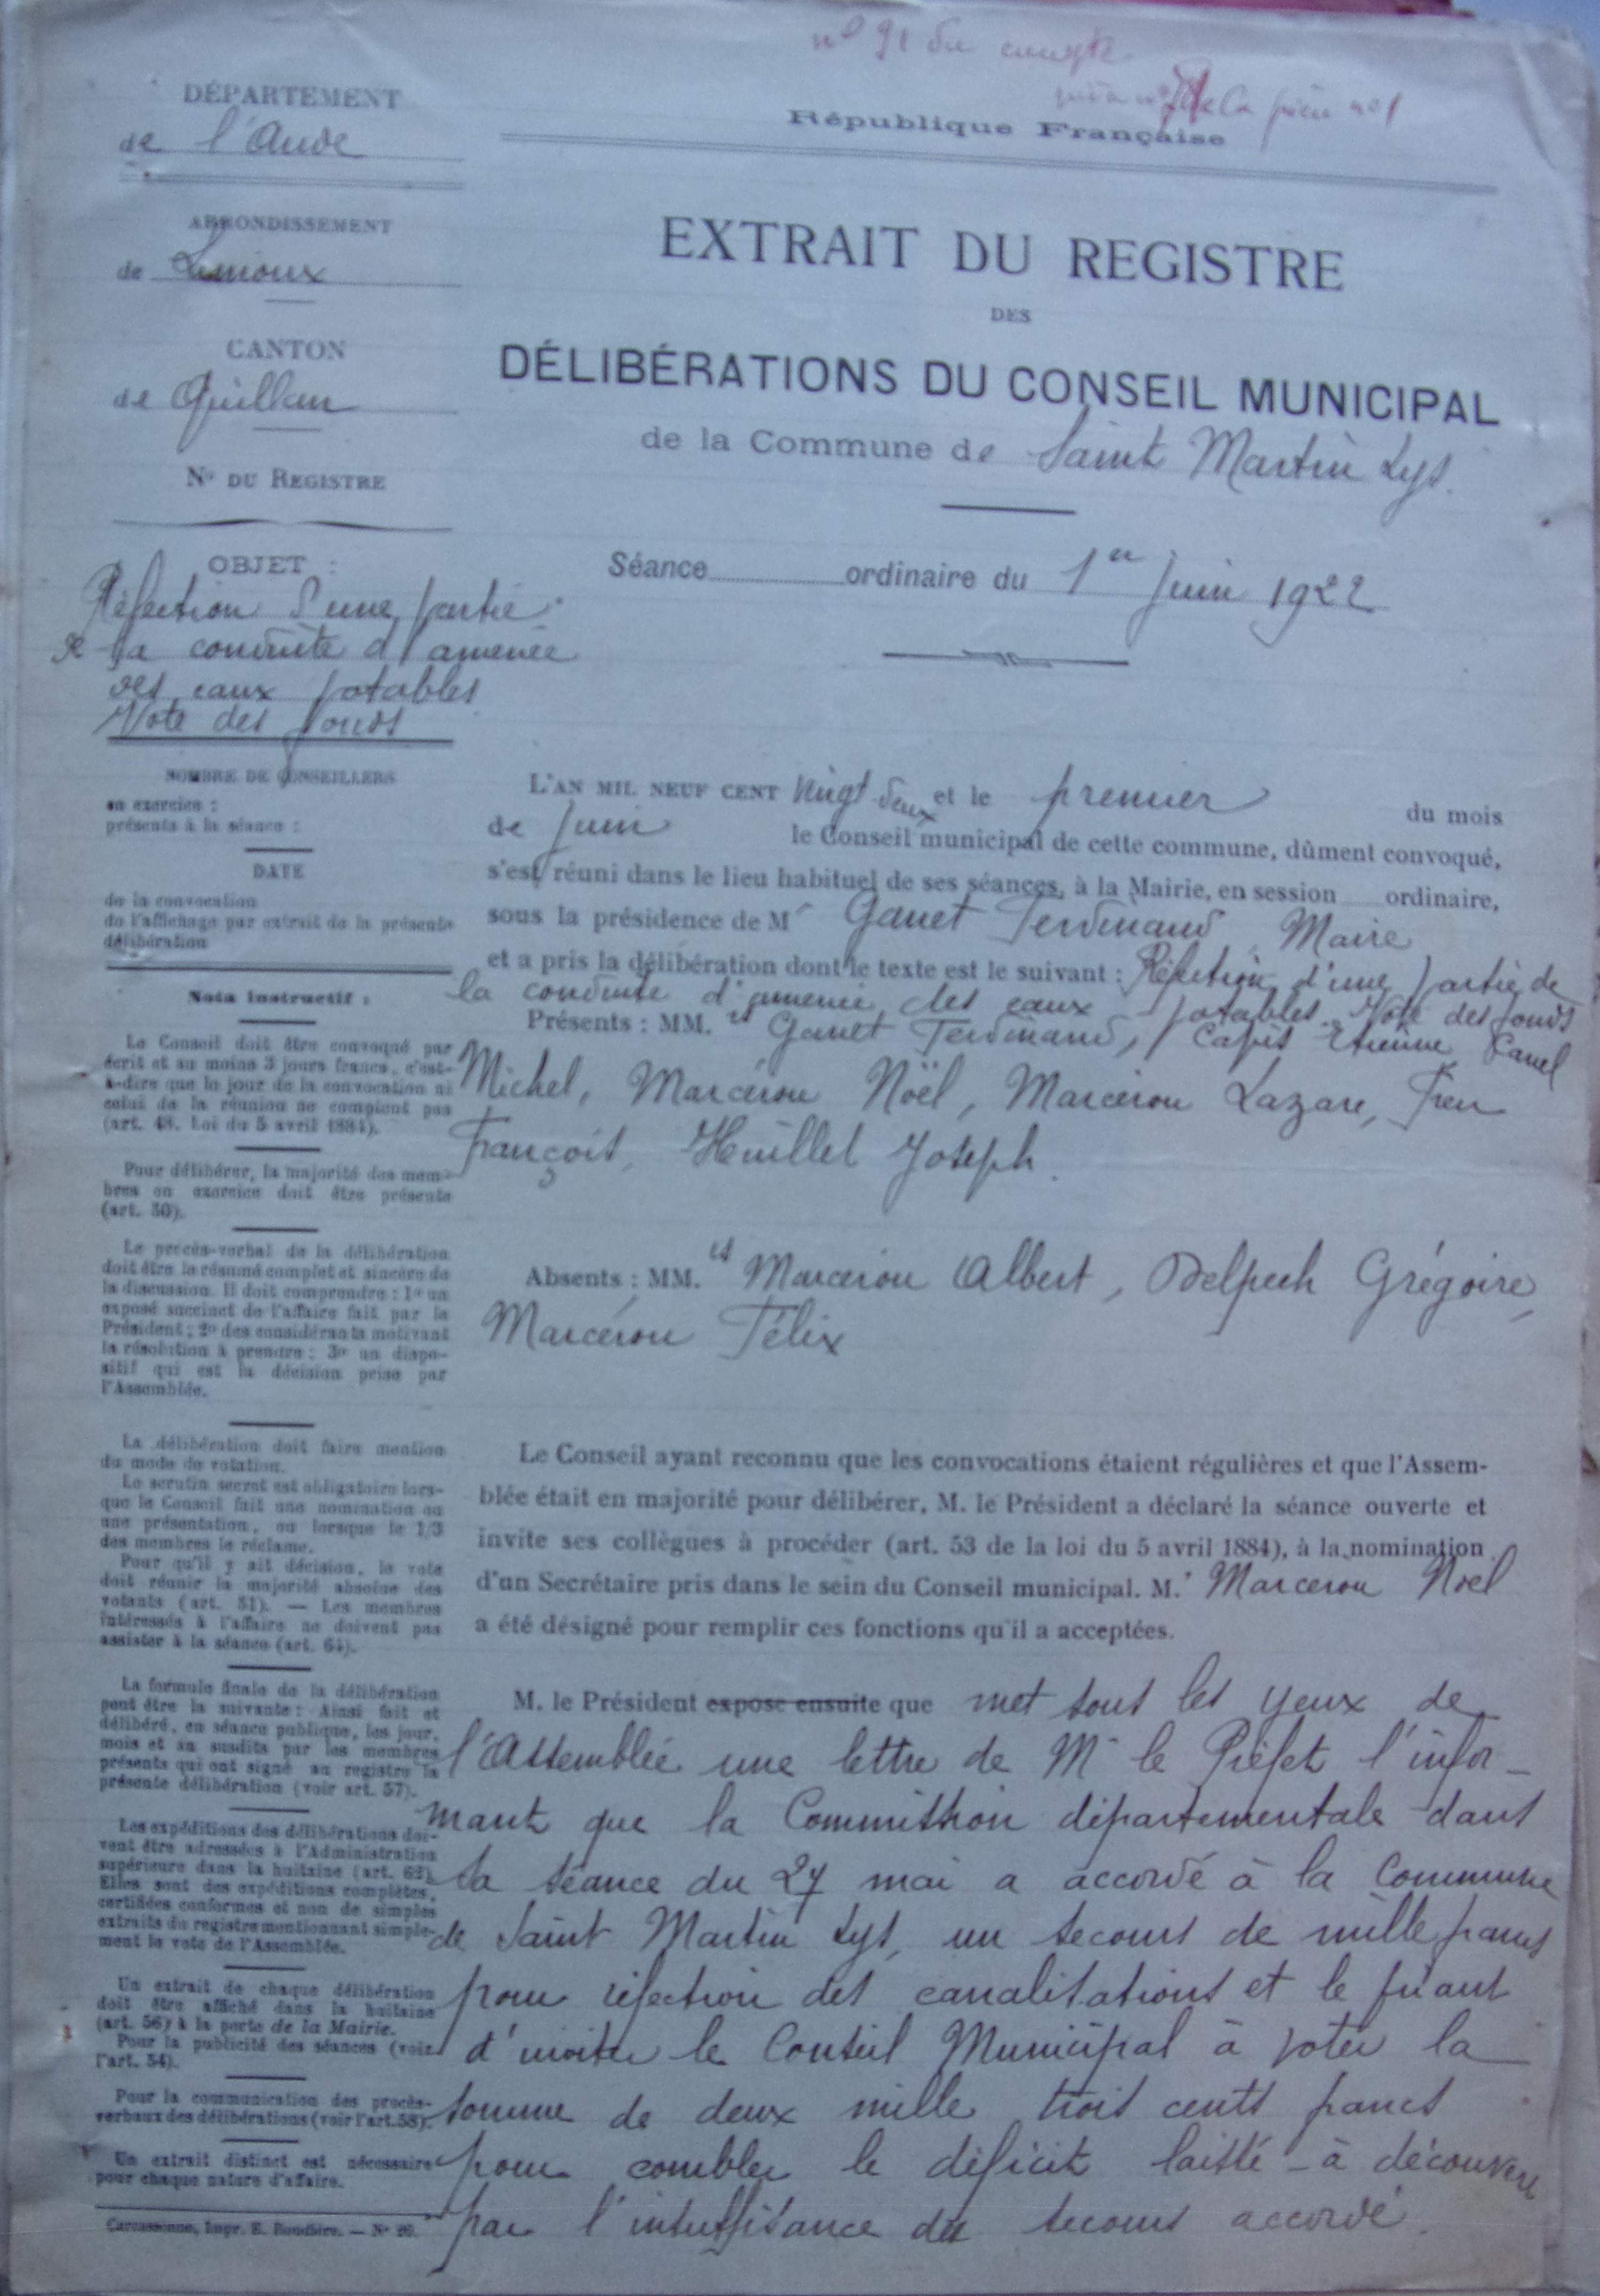 nº 91 du compte
de la pièce nº 1
République Française
DÉPARTEMENT
de l'Aude
ARRONDISSEMENT
de Limoux
CANTON
de Quillan
Nº DU REGISTRE
OBJET :
Réfection d'une partie
de la conduite d'amenée
des eaux potables
Vote des fonds
NOMBRE DE CONSEILLERS
en exercice :
présents à la séance :
DATE
de la convocation
de l'affichage par extrait de la présente
délibération
Nota instructif :
Le Conseil doit être convoqué par
écrit et au moins 3 jours francs, c'est-
à-dire que le jour de la convocation ni
celui de la réunion ne comptent pas
(art. 48. Loi du 5 avril 1884).
Pour délibérer, la majorité des mem-
bres en exercice doit être présente
(art. 50).
Le procès-verbal de la délibération
doit être le résumé complet et sincère de
la discussion. Il doit comprendre : 1º un
exposé succinct de l'affaire fait par le
Président ; 2º des considérants motivant
la résolution à prendre ; 3º un dispo-
sitif qui est la décision prise par
l'Assemblée.
La délibération doit faire mention
du mode de votation.
Le scrutin secret est obligatoire lors-
que le Conseil fait une nomination ou
une présentation, ou lorsque le 1/3
des membres le réclame.
Pour qu'il y ait décision, le vote
doit réunir la majorité absolue des
votants (art. 51). — Les membres
intéressés à l'affaire ne doivent pas
assister à la séance (art. 64).
La formule finale de la délibération
peut être la suivante : Ainsi fait et
délibéré, en séance publique, les jour,
mois et an susdits par les membres
présents qui ont signé au registre la
présente délibération (voir art. 57).
Les expéditions des délibérations doi-
vent être adressées à l'Administration
supérieure dans la huitaine (art. 62).
Elles sont des expéditions complètes,
certifiées conformes et non de simples
extraits du registre mentionnant simple-
ment le vote de l'Assemblée.
Un extrait de chaque délibération
doit être affiché dans la huitaine
(art. 56) à la porte de la Mairie.
Pour la publicité des séances (voir
l'art. 54).
Pour la communication des procès-
verbaux des délibérations (voir l'art. 58).
Un extrait distinct est nécessaire
pour chaque nature d'affaire.
Carcassonne, Impr. E. Roudière. — Nº 20.
EXTRAIT DU REGISTRE
DES
DÉLIBÉRATIONS DU CONSEIL MUNICIPAL
de la Commune de Saint Martin Lys.
Séance ordinaire du 1er Juin 1922
L'AN MIL NEUF CENT vingt deux et le premier du mois
de Juin le Conseil municipal de cette commune, dûment convoqué,
s'est réuni dans le lieu habituel de ses séances, à la Mairie, en session ordinaire,
sous la présidence de Mr Ganet Ferdinand, Maire
et a pris la délibération dont le texte est le suivant : Réfection d'une partie de
la conduite d'amenée des eaux potables. Vote des fonds
Présents : MM.rs Ganet Ferdinand, Capis Etienne, Canel
Michel, Marcérou Noël, Marcerou Lazare,
François, Huillet Joseph.
Absents : MM.rs Marcerou Albert, Delpech Grégoire,
Marcérou Félix
Le Conseil ayant reconnu que les convocations étaient régulières et que l'Assem-
blée était en majorité pour délibérer, M. le Président a déclaré la séance ouverte et
invite ses collègues à procéder (art. 53 de la loi du 5 avril 1884), à la nomination
d'un Secrétaire pris dans le sein du Conseil municipal. M.r Marcerou Noël
a été désigné pour remplir ces fonctions qu'il a acceptées.
M. le Président expose ensuite que met sous les yeux de
l'Assemblée une lettre de Mr le Préfet l'infor-
mant que la Commission départementale dans
sa séance du 27 mai a accordé à la Commune
de Saint Martin Lys, un secours de mille francs
pour réfection des canalisations et le priant
d'inviter le Conseil Municipal à voter la
somme de deux mille trois cents francs
pour combler le déficit laissé à découvert
par l'insuffisance du secours accordé.